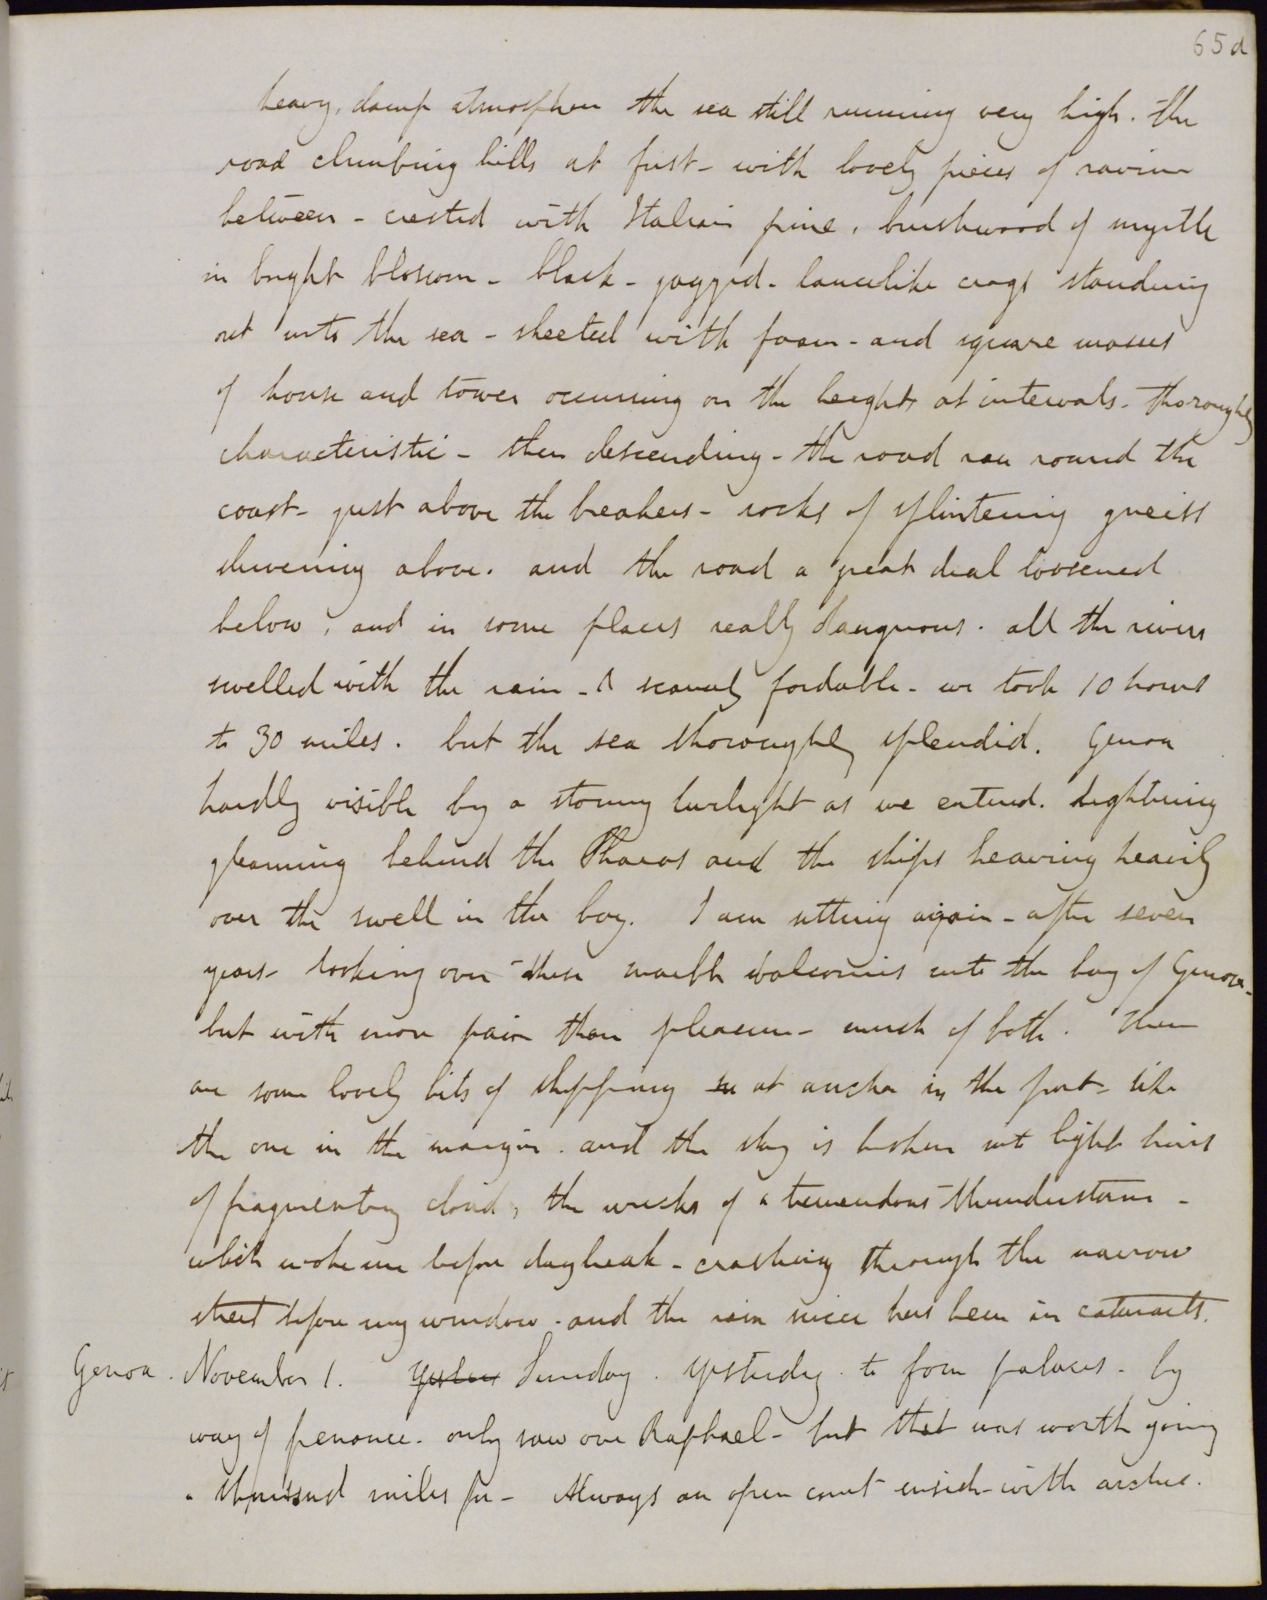 65d
heavy, damp atmosphere the sea still running very high. the
road climbing hills at first - with lovely pieces of ravine
between - crested with Italian pine, brushwood of myrtle
in bright blossom - black - jagged - lancelike crags standing
out into the sea - sheeted with foam - and square masses
of house and tower occurring on the heights at intervals - thoroughly
characteristic - then descending - the road ran round the
coast - just above the breakers - rocks of splintering gneiss
shivering above. and the road a great deal loosened
below, and in some places really dangerous. all the rivers
swelled with the rain - & scarcely fordable - we took 10 hours
to 30 miles. but the sea thoroughly splendid. Genoa
hardly visible by a stormy twilight as we entered. Lightning
gleaming behind the Pharos and the ships heaving heavily
over the swell in the bay. I am sitting again - after seven
years - looking over these marble balconies into the bay of Genoa -
but with more pain than pleasure - much of both. There
are some lovely bits of shipping at anchor in the port - like
the one in the margin. and the sky is broken into light
of fragmentary cloud, the wrecks of a tremendous thunderstorm -
which woke me before daybreak - crashing through the narrow
street before my window - and the rain since has been in cataracts.
Genoa. November 1. Sunday. Yesterday. to four palaces - by
way of penance. only saw one Raphael - but that was worth going
a thousand miles for - Always an open court inside - with arches.